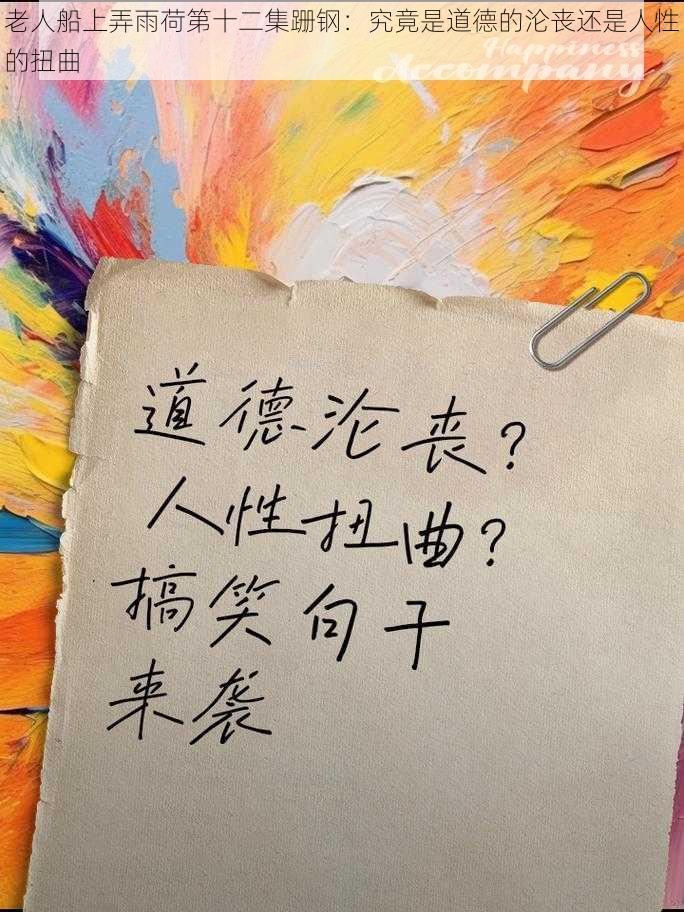 老人船上弄雨荷第十二集跚钢：究竟是道德的沦丧还是人性
的扭曲
Happiness
Accompany
道德沦丧?
人性扭曲?
搞笑句子
来袭